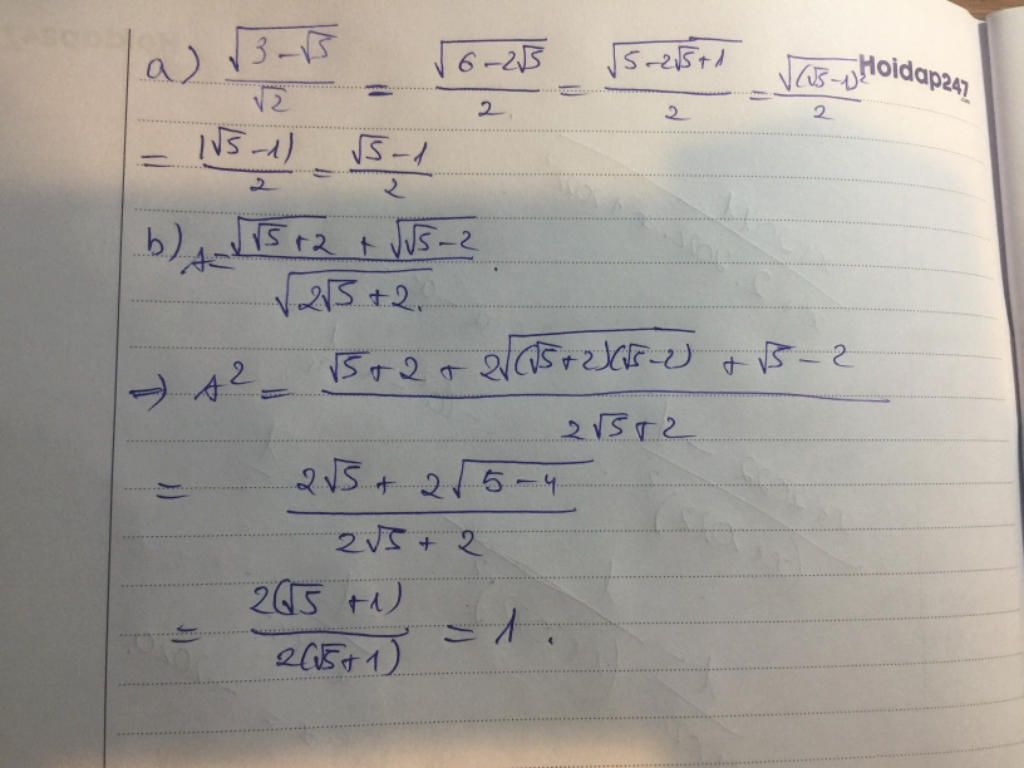 a) √(3-√5)/√2 = √(6-2√5)/2 = √(5-2√5+1)/2 = √((√5-1)²)/2 Hoidap247
= |√5-1|/2 = (√5-1)/2
b) A = (√(√5+2) + √(√5-2))/√(2√5+2).
=> A² = (√5+2+2√((√5+2)(√5-2)) + √5-2)/(2√5+2)
= (2√5+2√(5-4))/(2√5+2)
= 2(√5+1)/2(√5+1) = 1.